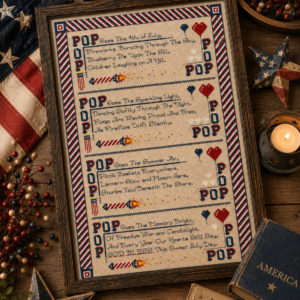 POP Goes The 4th of July,
Fireworks Bursting Through The Sky,
Blueberry Pie Upon The Sill,
Children Laughing on A Hill.
POP
POP
POP Goes The Sparkling Light,
Dancing Softly Through The Night,
Flags Are Waving Proud And Free,
As Fireflies Drift
POP
POP
POP Goes The Summer Air,
Picnic Baskets Everywhere,
Lantern Glow and Mason Jars,
Stories Told Beneath The Stars.
POP
POP
POP Goes The Memory Bright,
Of Freedom Won and Candlelight,
And Every Year Our Hearts Still Say,
GOD BLESS This Sweet July Day.
POP
AMERICA